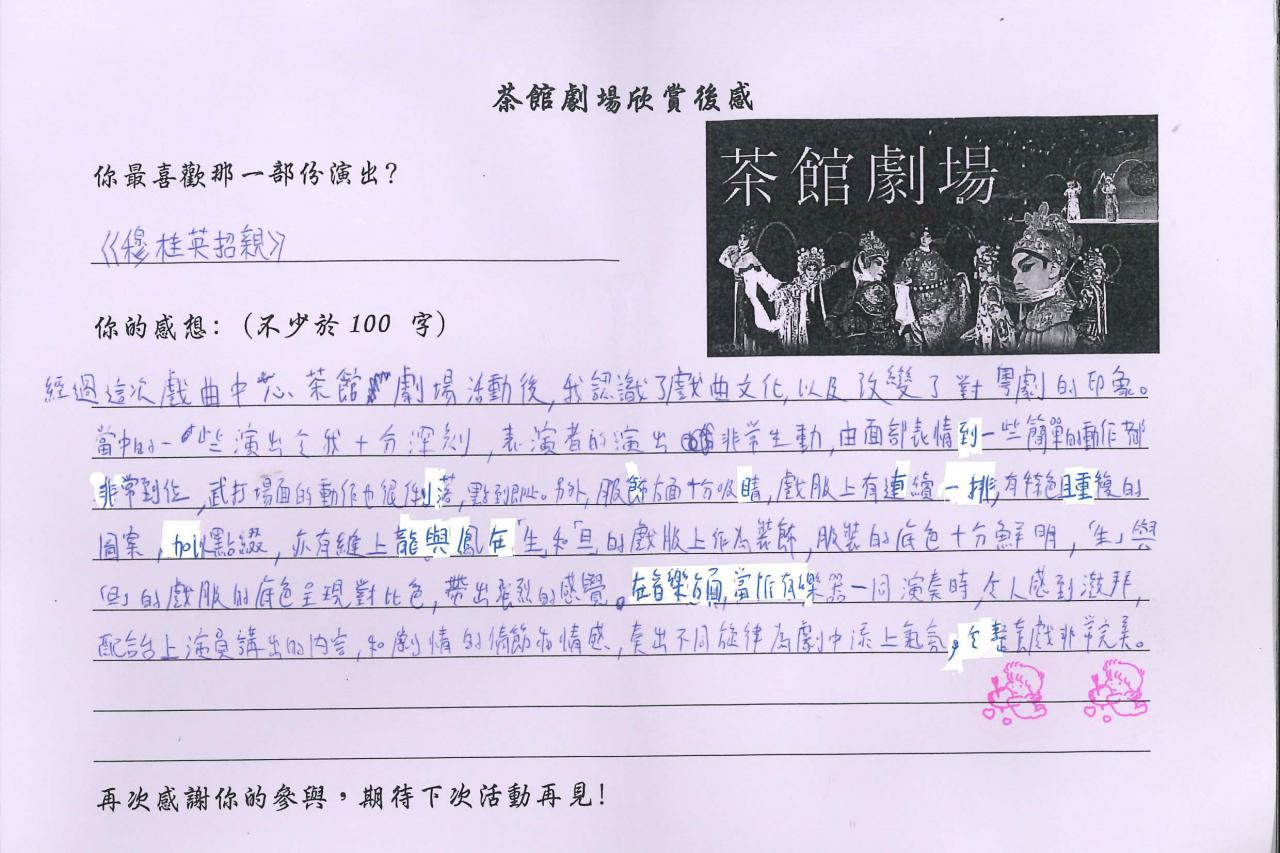 茶館劇場欣賞後感
茶館劇場
你最喜歡那一部份演出?
《穆桂英招親》
你的感想:(不少於100 字)
經過這次戲曲中心茶館劇場活動後,我認識了戲曲文化,以及改變了對粵劇的印象。
當中的一些演出令我十分深刻,表演者的演出非常生動,由面部表情到一些簡單的動作都
非常到位,武打場面的動作也很俐落,點到即止。另外,服飾方面十分吸睛,戲服上有連續一排,有特色且重複的
圖案,加以點綴,亦有縫上龍與鳳在「生」和「旦」的戲服上作為裝飾,服裝的底色十分鮮明,「生」與
「旦」的戲服的底色呈現對比色,帶出強烈的感覺。在音樂方面,當所有樂器一同演奏時,令人感到激昂,
配合台上演員講出的內容,和劇情的情節和情感,奏出不同旋律為劇中添上氣氛,令整套戲非常完美。
再次感謝你的參與,期待下次活動再見!